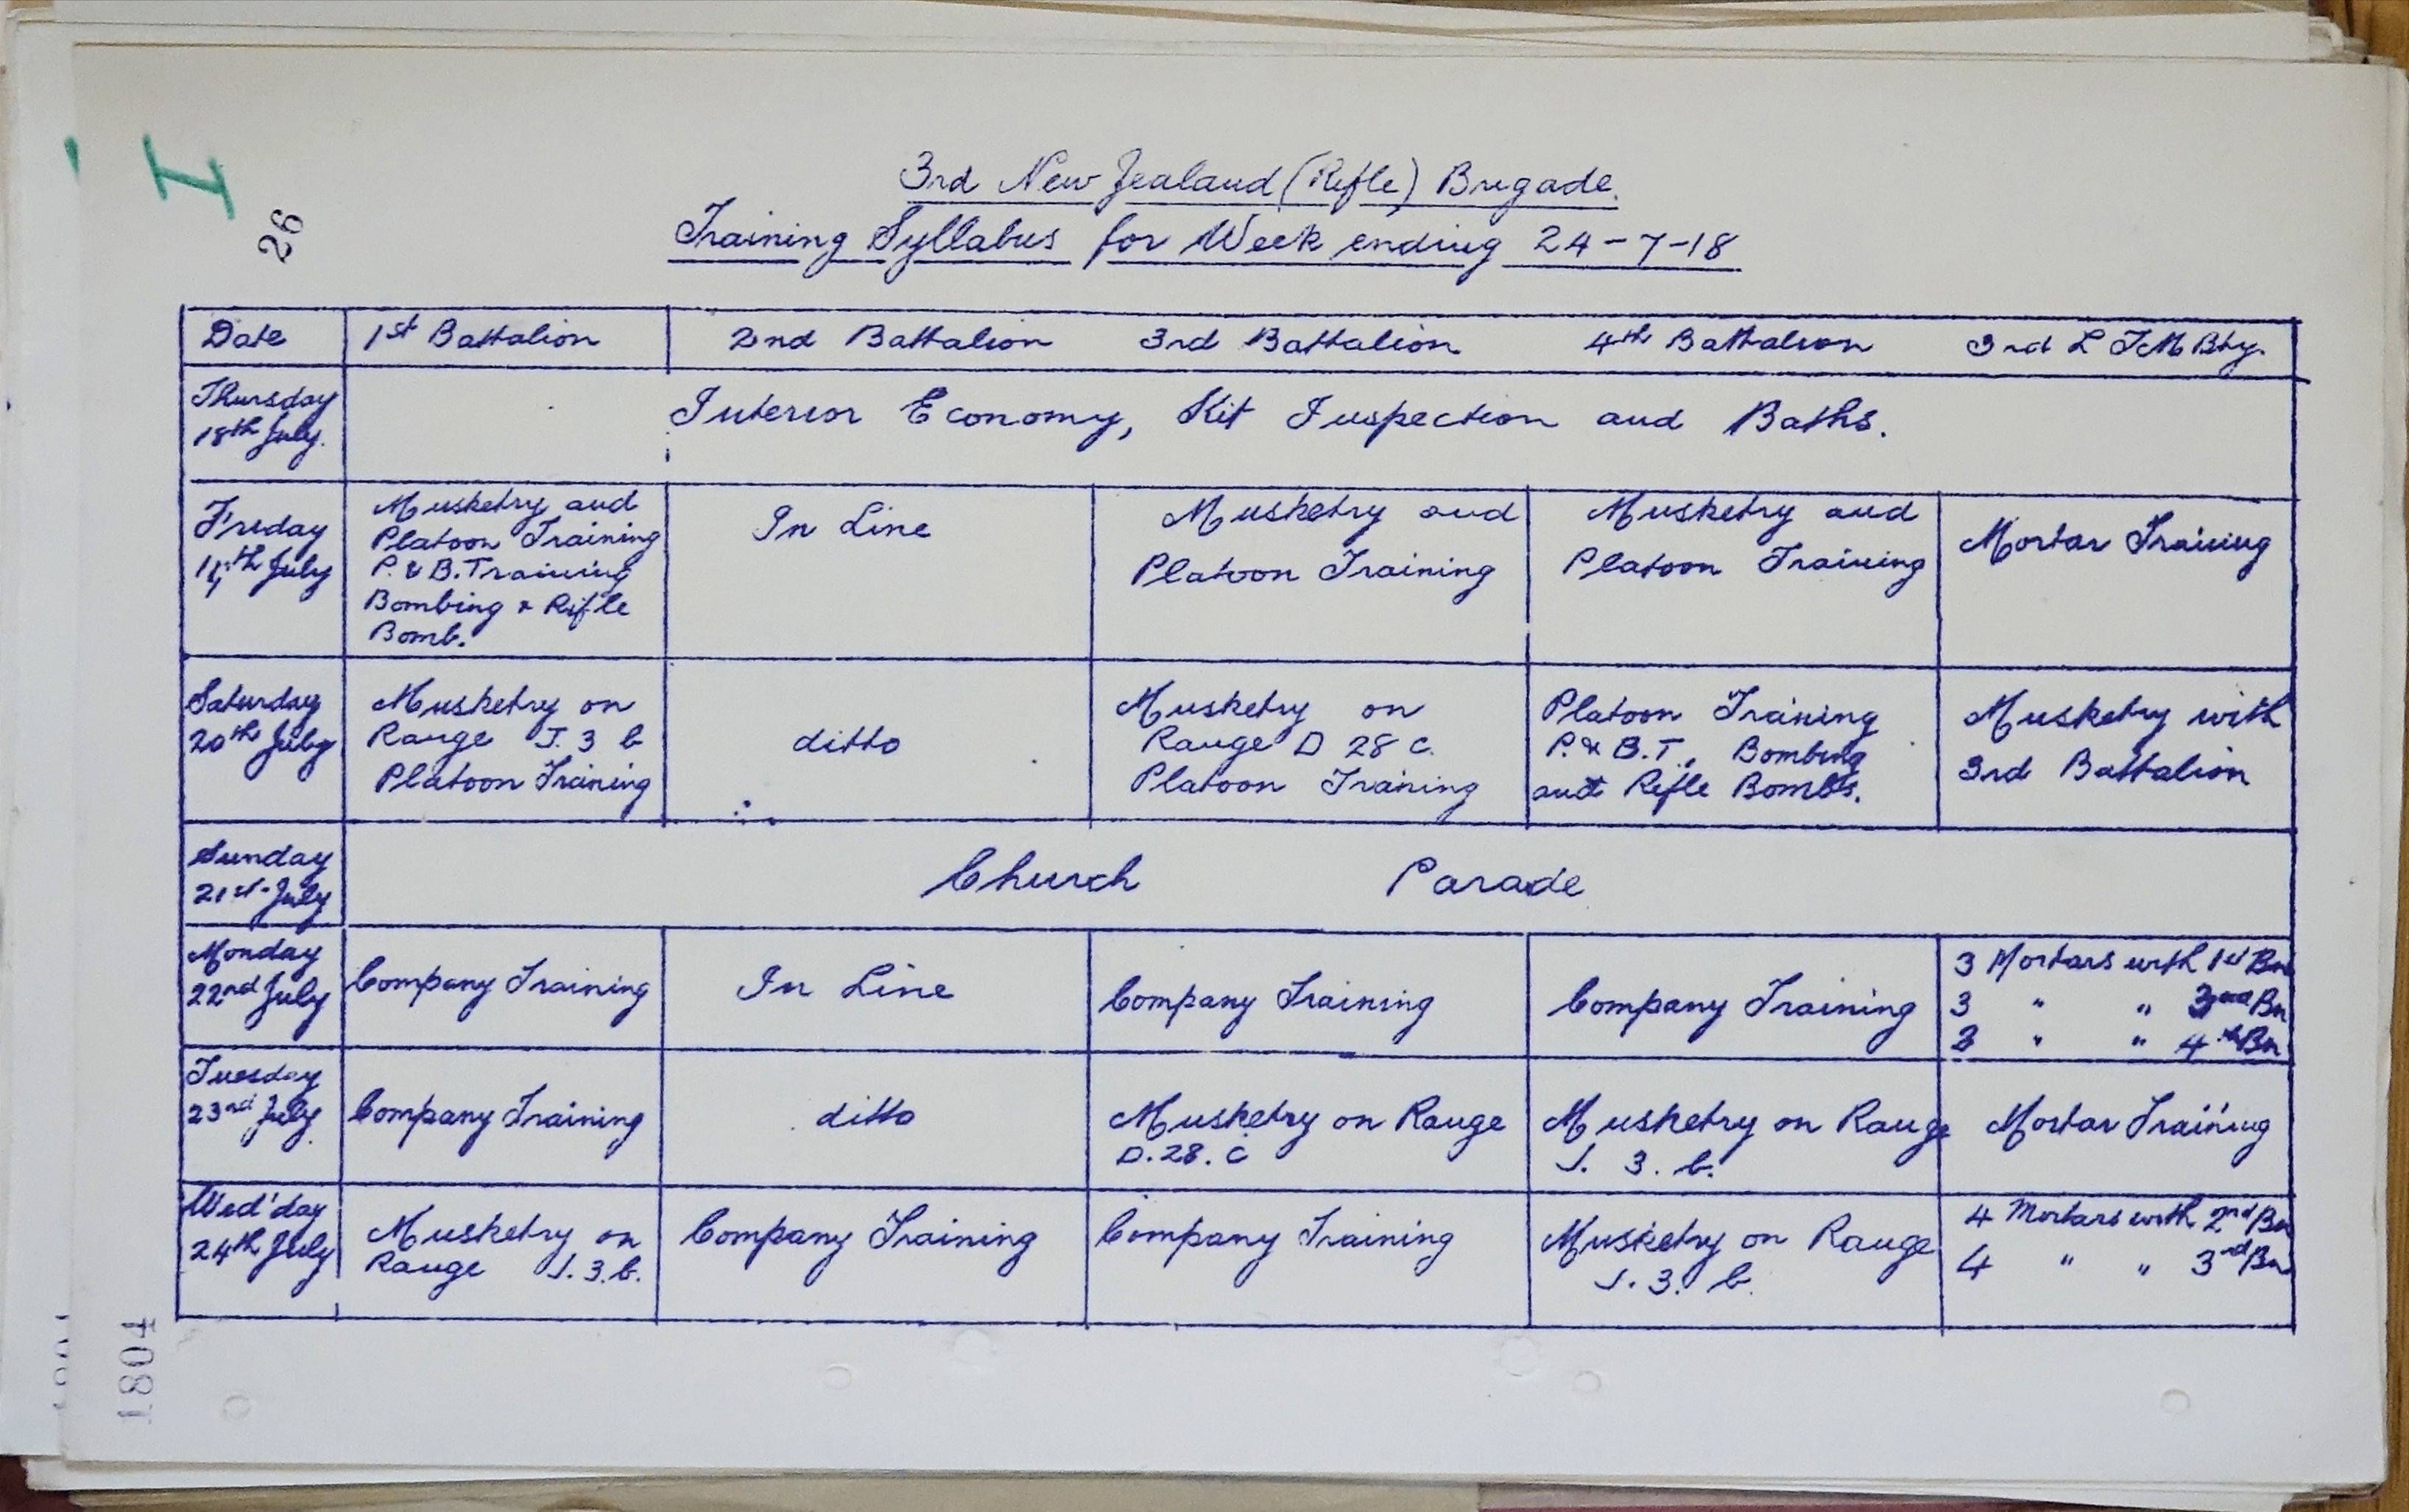 I
26
3rd New Zealand (Rifle) Brigade.
Training Syllabus for Week ending 24-7-18
Date 1st Battalion 2nd Battalion 3rd Battalion 4th Battalion 3rd L T M Bty.
Thursday
18th July.
Interior Economy, Kit Inspection and Baths.
Friday
19th July
Musketry and
Platoon Training
P. & B. Training
Bombing & Rifle
Bomb.
In Line
Musketry and
Platoon Training
Musketry and
Platoon Training
Mortar Training
Saturday
20th July
Musketry on
Range J. 3 b
Platoon Training
ditto
Musketry on
Range D 28 c.
Platoon Training
Platoon Training
P. & B.T., Bombing
and Rifle Bombs.
Musketry with
3rd Battalion
Sunday
21st July
Church Parade
Monday
22nd July
Company Training
In Line
Company Training
Company Training
3 Mortars with 1st Bn
3 " " Bn
" " 4th Bn
Tuesday
23rd July
Company Training
ditto
Musketry on Range
D. 28. C
Musketry on Range
J. 3. b.
Mortar Training
Wed'day
24th July
Musketry on
Range J. 3. b.
Company Training
Company Training
Musketry on Range
J. 3. b.
4 Mortars with 2nd Bn
4 " " 3rd Bn
1804